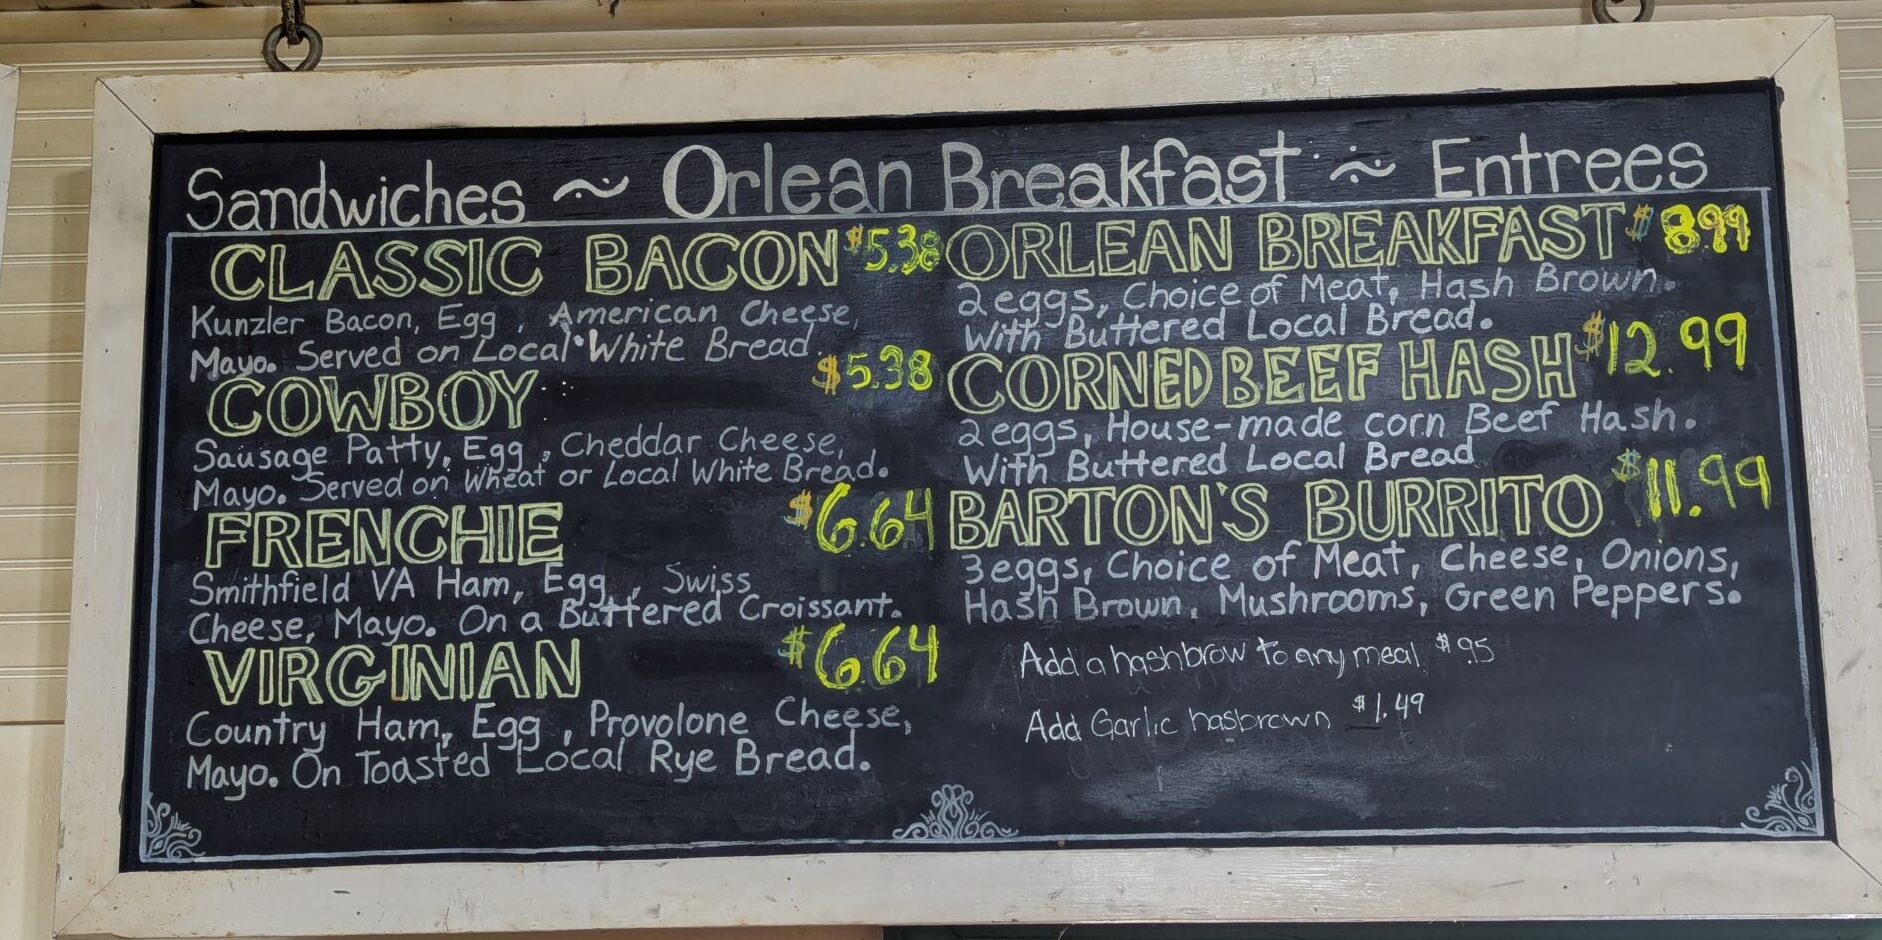 Sandwiches ~ Orlean Breakfast ~ Entrees
CLASSIC BACON $5.38
Kunzler Bacon, Egg, American Cheese,
Mayo. Served on Local White Bread.
COWBOY $5.38
Sausage Patty, Egg, Cheddar Cheese,
Mayo. Served on Wheat or Local White Bread.
FRENCHIE $6.64
Smithfield VA Ham, Egg, Swiss
Cheese, Mayo. On a Buttered Croissant.
VIRGINIAN $6.64
Country Ham, Egg, Provolone Cheese,
Mayo. On Toasted Local Rye Bread.
ORLEAN BREAKFAST $8.99
2 eggs, Choice of Meat, Hash Brown.
With Buttered Local Bread.
CORNED BEEF HASH $12.99
2 eggs, House-made corn Beef Hash.
With Buttered Local Bread
BARTON'S BURRITO $11.99
3 eggs, Choice of Meat, Cheese, Onions,
Hash Brown, Mushrooms, Green Peppers.
Add a hashbrow to any meal $.95
Add Garlic hasbrown $1.49